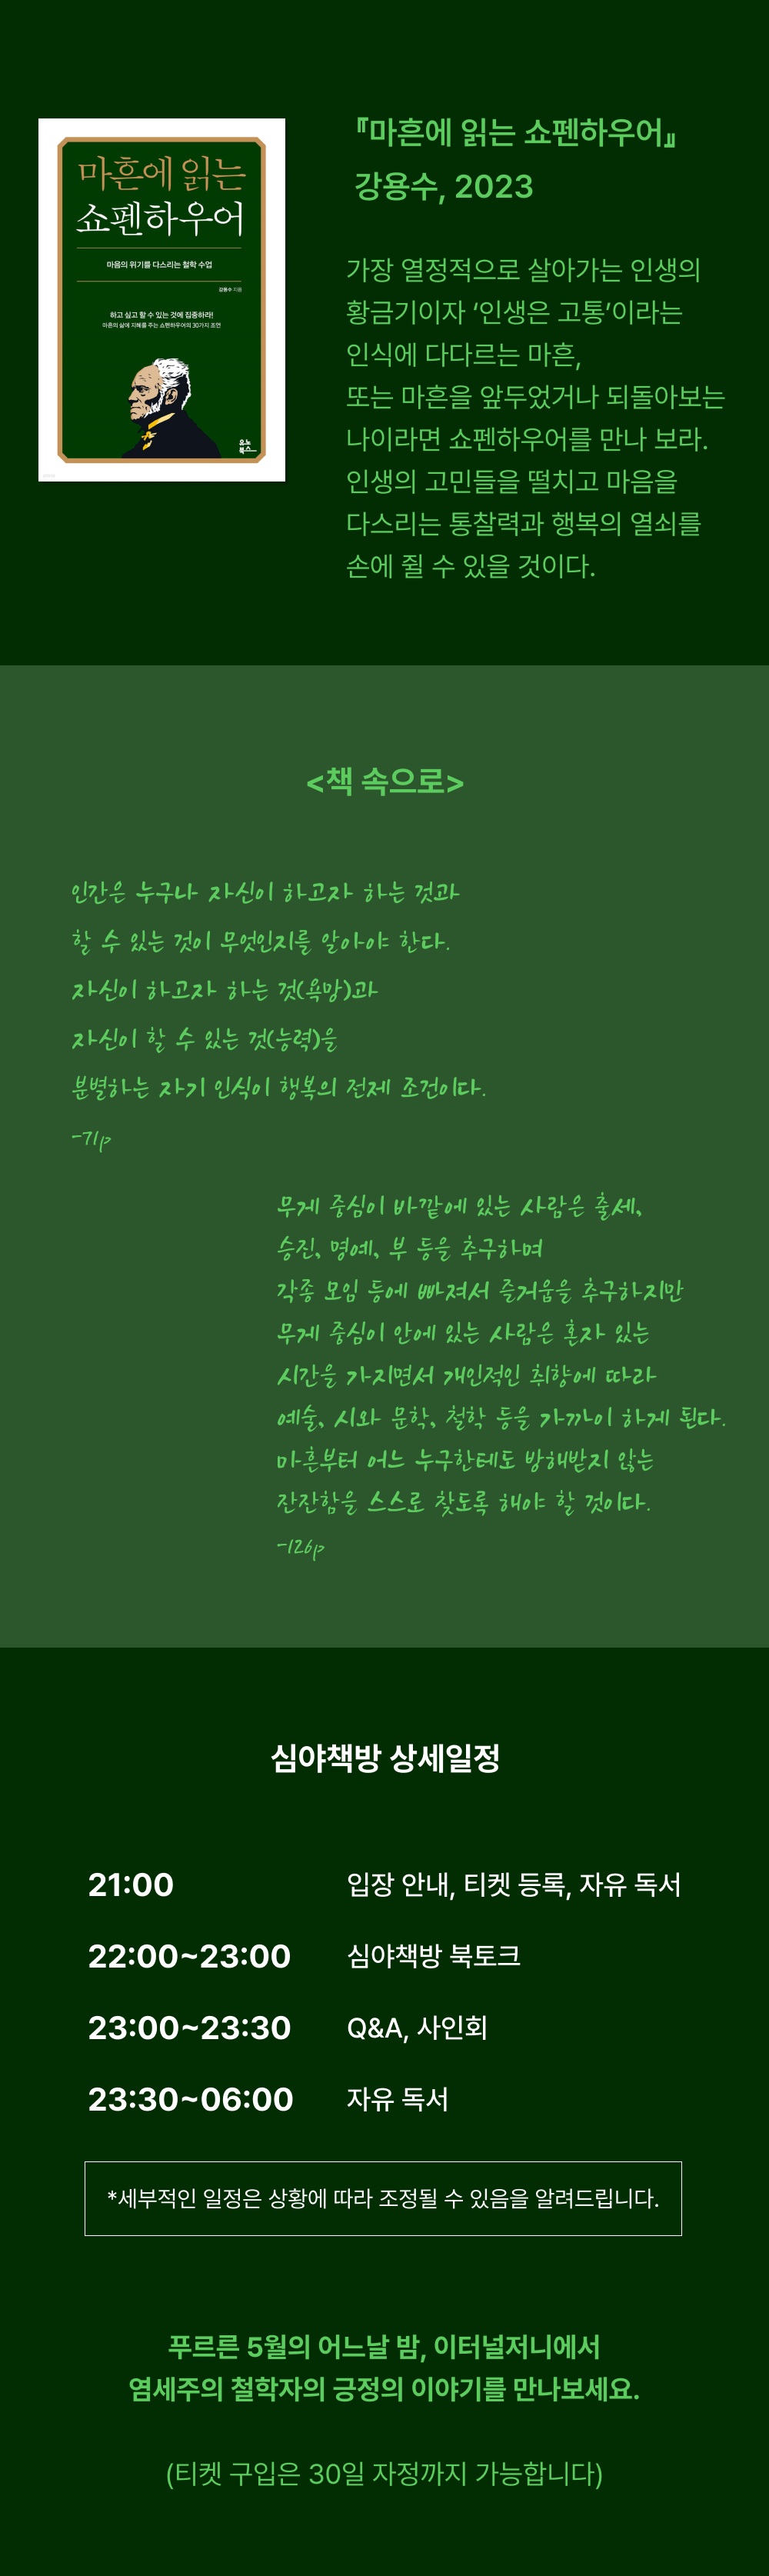 마흔에 읽는
쇼펜하우어
마음의 위기를 다스리는 철학 수업
강용수 지음
하고 싶고 할 수 있는 것에 집중하라!
마흔의 삶에 지혜를 주는 쇼펜하우어의 30가지 조언
유노
북스
『마흔에 읽는 쇼펜하우어』
강용수, 2023
가장 열정적으로 살아가는 인생의
황금기이자 ‘인생은 고통’이라는
인식에 다다르는 마흔,
또는 마흔을 앞두었거나 되돌아보는
나이라면 쇼펜하우어를 만나 보라.
인생의 고민들을 떨치고 마음을
다스리는 통찰력과 행복의 열쇠를
손에 쥘 수 있을 것이다.
<책 속으로>
인간은 누구나 자신이 하고자 하는 것과
할 수 있는 것이 무엇인지를 알아야 한다.
자신이 하고자 하는 것(욕망)과
자신이 할 수 있는 것(능력)을
분별하는 자기 인식이 행복의 전제 조건이다.
-71p
무게 중심이 바깥에 있는 사람은 출세,
승진, 명예, 부 등을 추구하며
각종 모임 등에 빠져서 즐거움을 추구하지만
무게 중심이 안에 있는 사람은 혼자 있는
시간을 가지면서 개인적인 취향에 따라
예술, 시와 문학, 철학 등을 가까이 하게 된다.
마흔부터 어느 누구한테도 방해받지 않는
잔잔함을 스스로 찾도록 해야 할 것이다.
-126p
심야책방 상세일정
21:00 입장 안내, 티켓 등록, 자유 독서
22:00~23:00 심야책방 북토크
23:00~23:30 Q&A, 사인회
23:30~06:00 자유 독서
*세부적인 일정은 상황에 따라 조정될 수 있음을 알려드립니다.
푸르른 5월의 어느날 밤, 이터널저니에서
염세주의 철학자의 긍정의 이야기를 만나보세요.
(티켓 구입은 30일 자정까지 가능합니다)